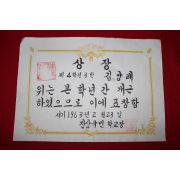 상장
제4학년3반 김
위는 본 학년간 개근
하였으므로 이에 표창함
서기 1963년 2월 23일
국민학교장